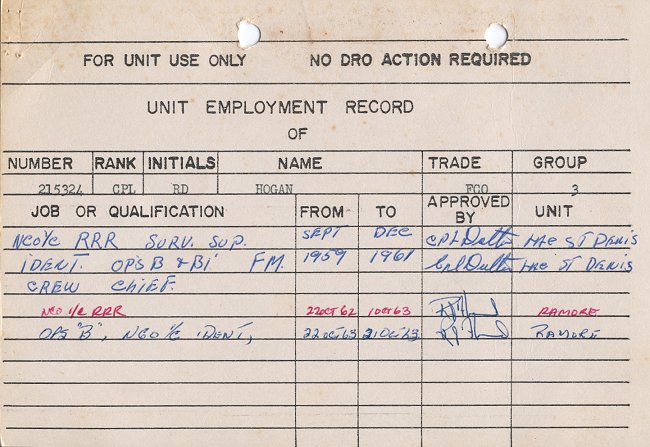 FOR UNIT USE ONLY NO DRO ACTION REQUIRED
UNIT EMPLOYMENT RECORD
OF
NUMBER RANK INITIALS NAME TRADE GROUP
215324 CPL RD HOGAN FCO 3
JOB OR QUALIFICATION FROM TO APPROVED BY UNIT
NCO i/c RRR SURV. SUP. SEPT DEC CPL Dutton LAC ST DENIS
IDENT. OPS B & BI F.M. 1959 1961 Cpl Dutton LAC ST DENIS
CREW CHIEF.
NCO i/c RRR 22 OCT 62 1 OCT 63 RAMORE
OPS "B", NCO i/c IDENT, 22 OCT 63 RAMORE